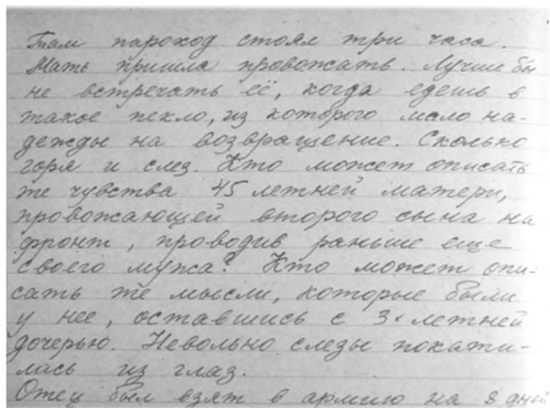 Там пароход стоял три часа.
Мать пришла провожать. Лучше бы
не встречать её, когда едешь в
такое пекло, из которого мало на-
дежды на возвращение. Сколько
горя и слез. Кто может описать
те чувства 45 летней матери,
провожающей второго сына на
фронт, проводив раньше еще
своего мужа? Кто может опи-
сать те мысли, которые были
у нее, оставшись с 3х летней
дочерью. Невольно слезы покати-
лись из глаз.
Отец был взят в армию на 8 дней